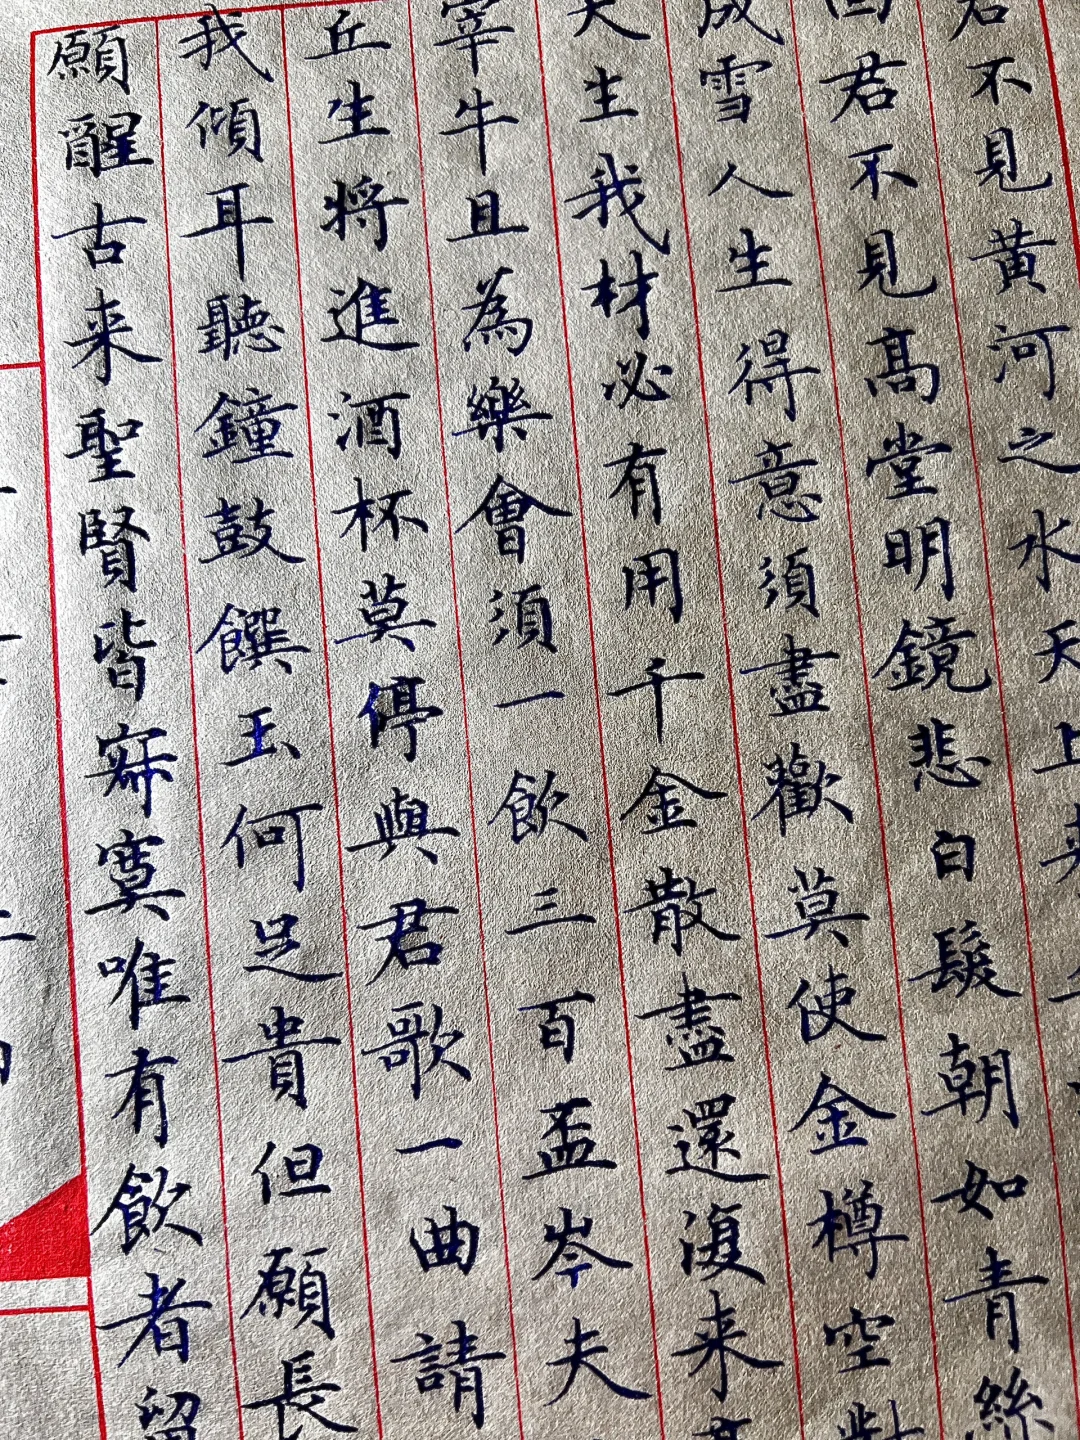 君不見黄河之水天上来
回君不見髙堂明鏡悲白髮朝如青絲
成雪人生得意須盡歡莫使金樽空對
天生我材必有用千金散盡還復来
宰牛且為樂會須一飲三百盃岑夫
丘生將進酒杯莫停與君歌一曲請
我傾耳聽鐘鼓饌玉何足貴但願長
願醒古来聖賢皆寂寞唯有飲者留